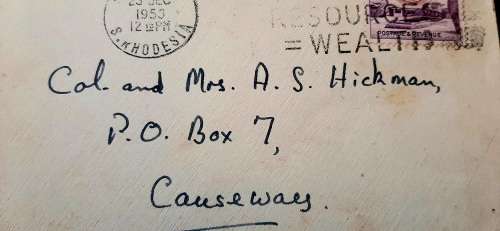 23 DEC
1953
12 - PM
S. RHODESIA
RESOUR
= WEALTH
POSTAGE & REVENUE
Col. and Mrs. A. S. Hickman,
P.O. Box 7,
Causeway.